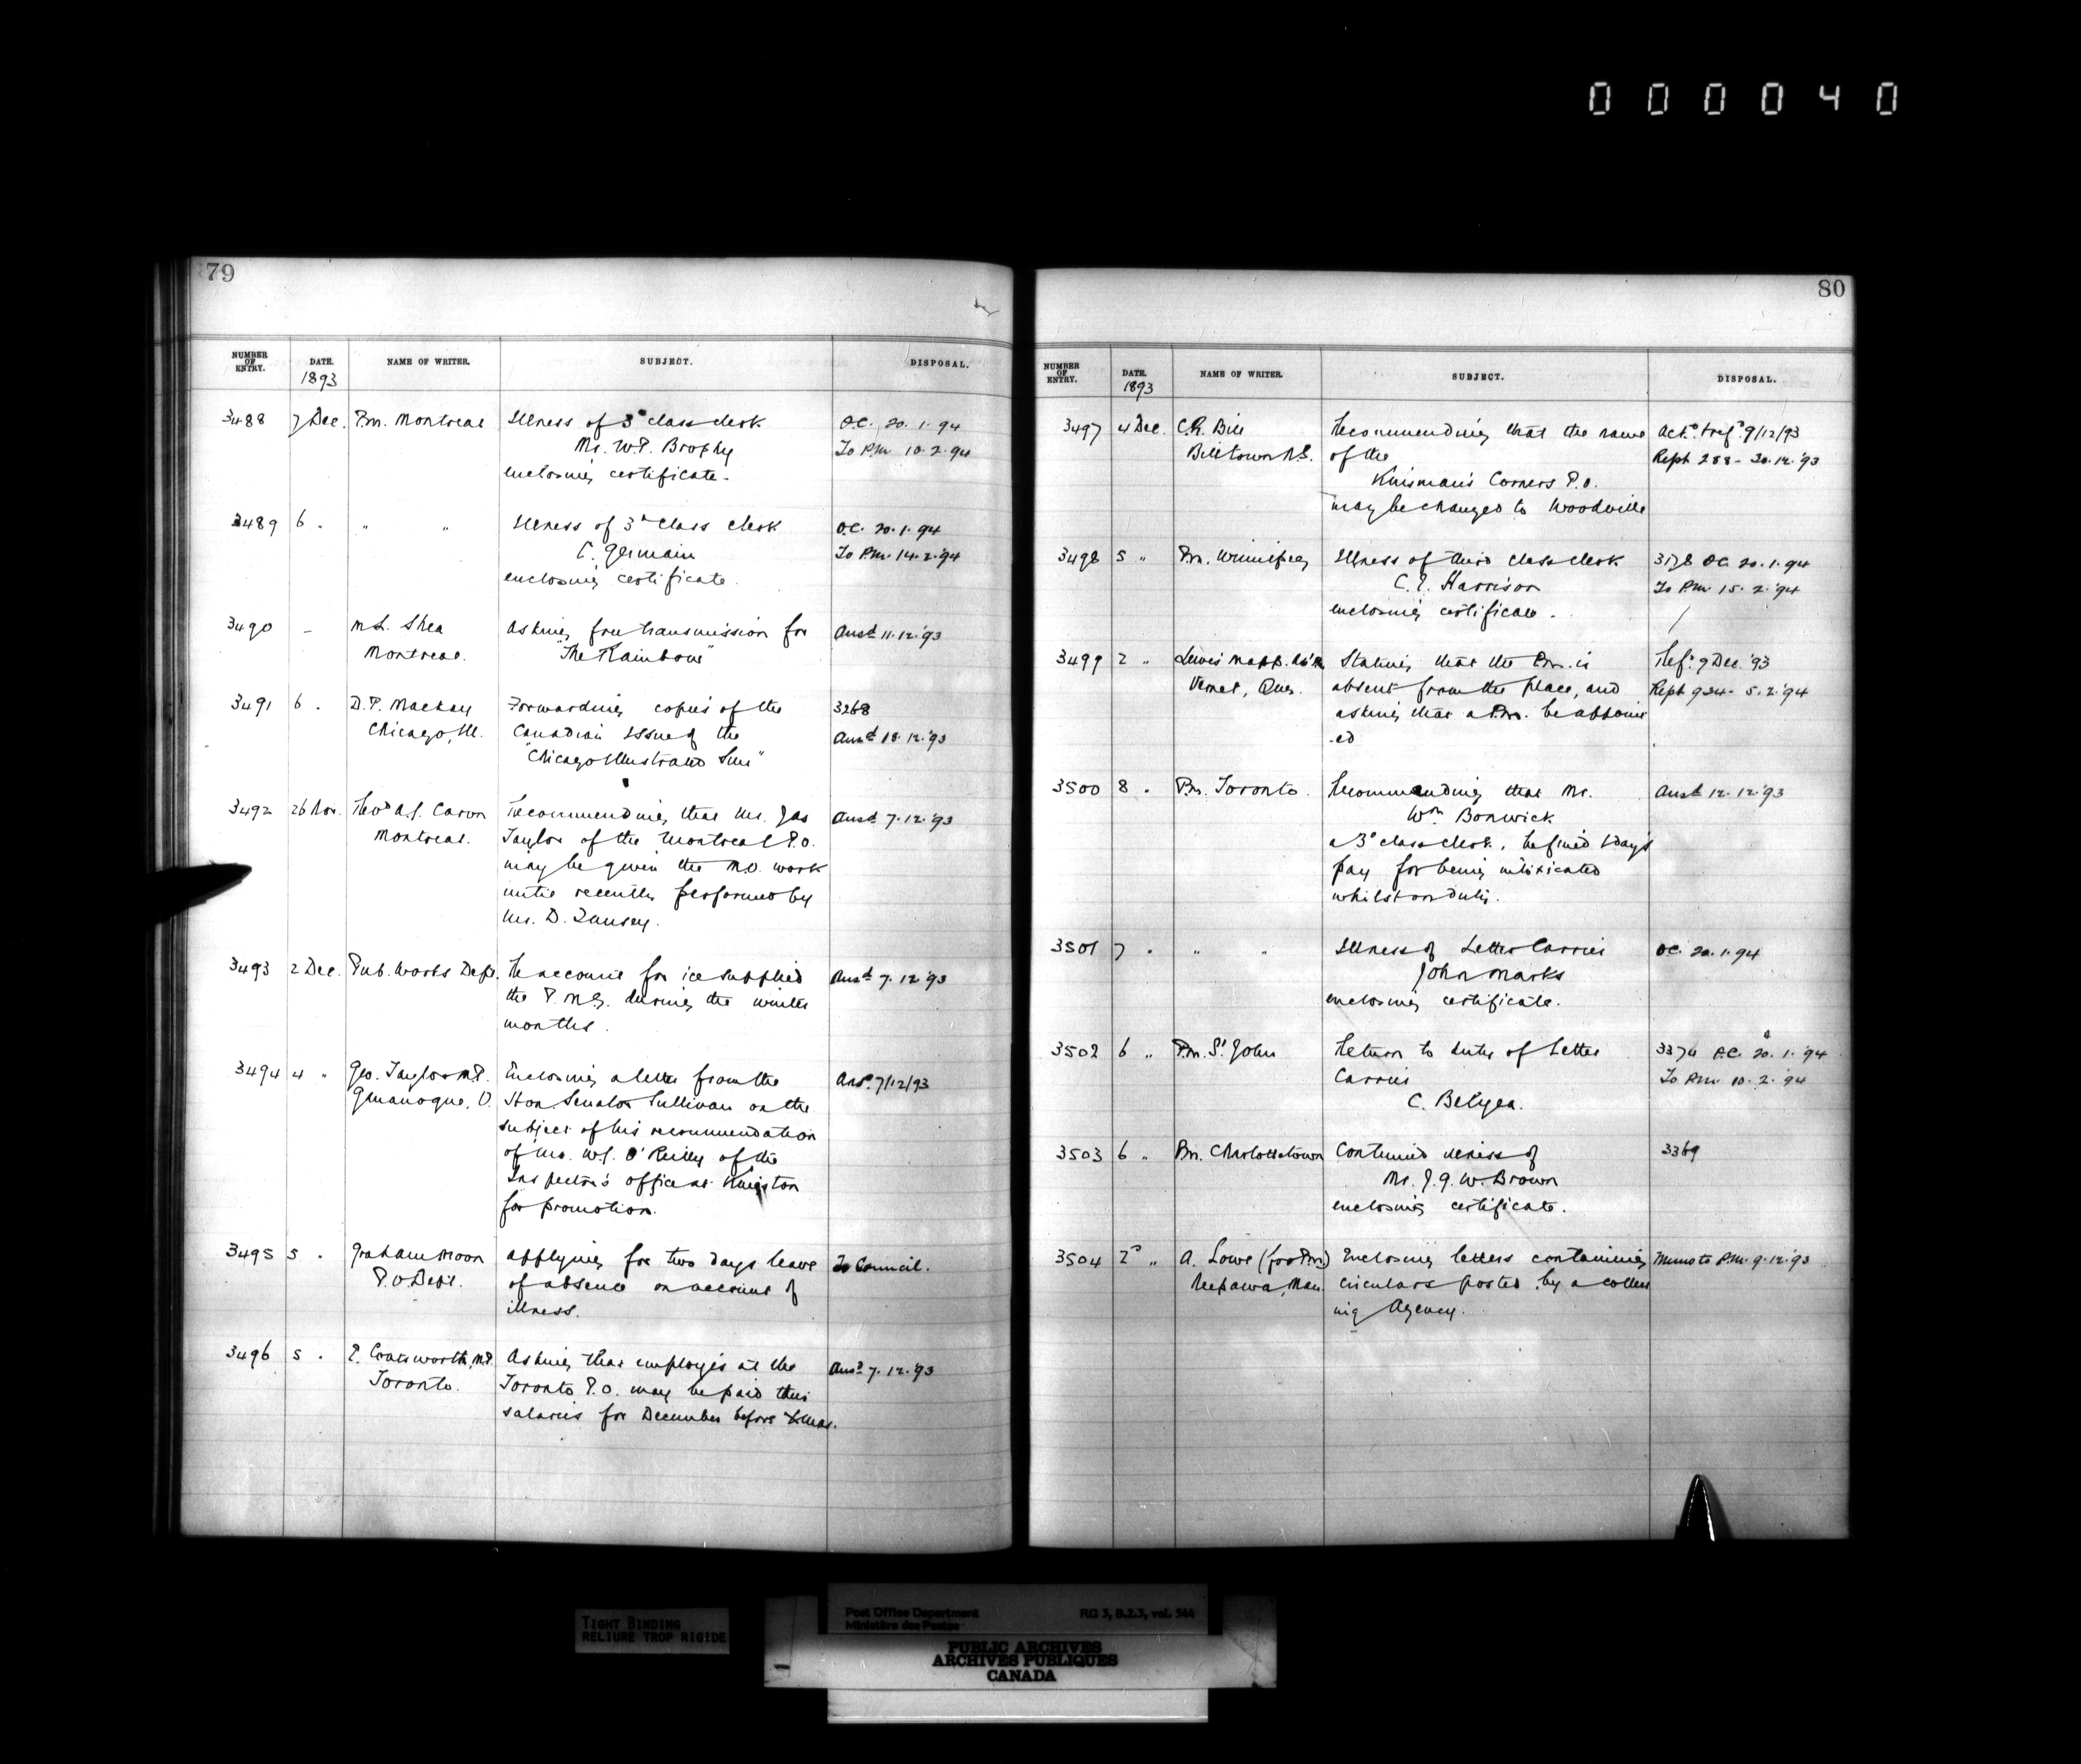 000040
79
NUMBER OF ENTRY. DATE. 1893 NAME OF WRITER. SUBJECT. DISPOSAL.
3488 7 Dec. P.m. Montreal Illness of 3ª class clerk O.C. 20.1.94
Mr. W.P. Brophy To P.M. 10.2.94
enclosing certificate.
3489 6 . " " Illness of 3ª class clerk O.C. 20.1.94
C. Germain To P.M. 14.2.94
enclosing certificate.
3490 – M.L. Shea Asking free transmission for Ansd 11.12.'93
Montreal. "The Rainbow"
3491 6 . D.P. Mackay Forwarding copies of the 3268
Chicago, Ill. Canadian issue of the Ansd 18.12.'93
"Chicago Illustrated Sun"
3492 26 Nov. A.J. Caron Recommending that Mr. Jas Ansd 7.12.'93
Montreal. Taylor of the Montreal P.O.
may be given the M.O. work
until recently performed by
Mr. D.
3493 2 Dec. Pub. Works Dept. Re account for ice supplied Ansd 7.12.'93
the P.M.G. during the winter
months.
3494 4 " Geo. Taylor M.P. Enclosing a letter from the Ansd. 7/12/93
Gananoque, O. Hon. Senator Sullivan on the
subject of his recommendation
of Mr. W.J. O'Reilly of the
Inspector's office at Kingston
for promotion.
3495 5 . Graham Moon Applying for two days leave To Council.
P.O. Dept. of absence on account of
illness.
3496 5 . E. Coatsworth, M.P. Asking that employés at the Ansd 7.12.'93
Toronto. Toronto P.O. may be paid their
salaries for December before Xmas.
80
NUMBER OF ENTRY. DATE. 1893 NAME OF WRITER. SUBJECT. DISPOSAL.
3497 4 Dec. C.R. Bill Recommending that the name 9/12/93
Billtown N.S. of the Rept 288 - 20.12.'93
Kinsman's Corners P.O.
may be changed to Woodville
3498 5 " P.m. Winnipeg Illness of third class clerk 3178 O.C. 20.1.94
C.E. Harrison To P.M. 15.2.'94
enclosing certificate.
3499 2 " Lewis Stating that the P.m. is Ref. 9 Dec. '93
Que. absent from the place, and Rept 924 - 5.2.'94
asking that a P.m. be appoint
-ed
3500 8 . P.m. Toronto. Recommending that Mr. Ansd 12.12.'93
Wm Bonwick
a 3ª class clerk, be fined 1 day's
pay for being intoxicated
whilst on duty.
3501 7 . " " Illness of Letter Carrier O.C. 20.1.94
John Marks
enclosing certificate.
3502 6 " P.m. St. John Return to duty of Letter 3374 O.C. 20.1.'94
Carrier To P.M. 10.2.'94
C. Belyea.
3503 6 " P.m. Charlottetown Continued illness of 3369
Mr. J.G.W. Brown
enclosing certificate.
3504 2 " A. Lowe (for P.m.) Enclosing letters containing Memo to P.M. 9.12.'93
Neepawa, Man. circulars posted by a collect
ing Agency.
TIGHT BINDING
RELIURE TROP RIGIDE
Post Office Department RG 3, B.2.3, vol. 544
Ministère des Postes
PUBLIC ARCHIVES
ARCHIVES PUBLIQUES
CANADA